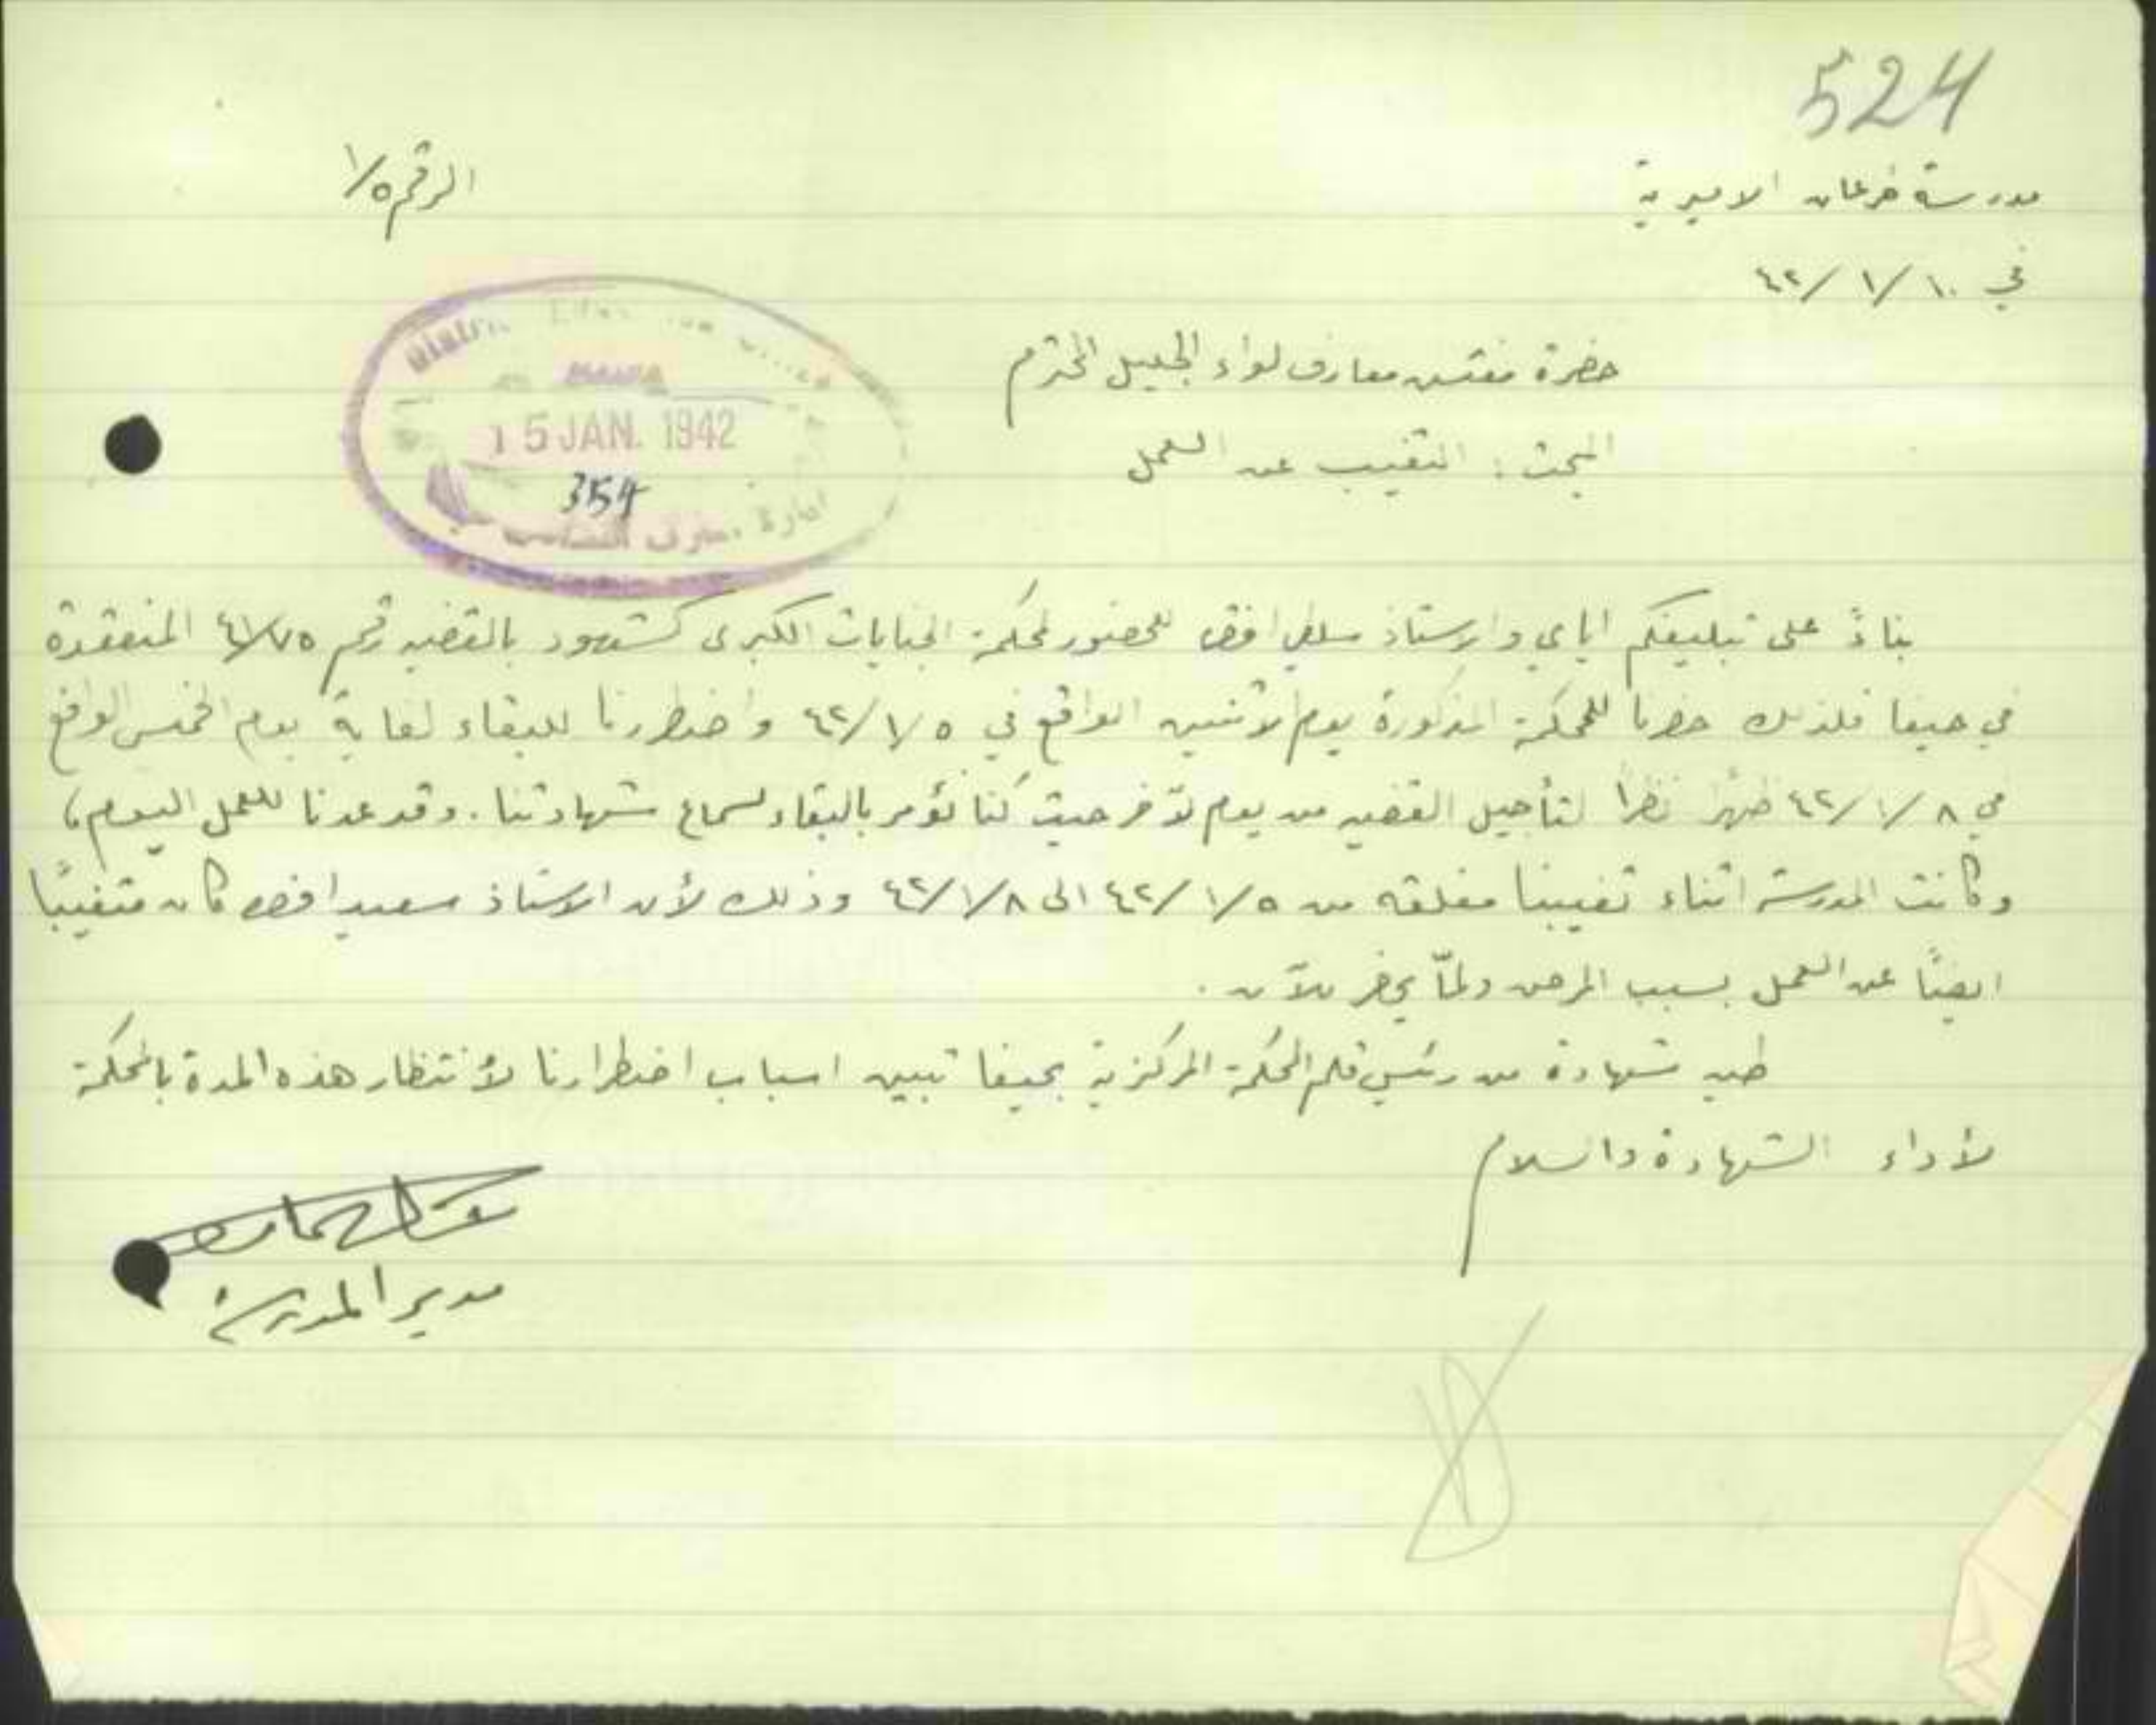 524
مدرسة فرعان الاميرية
الرقم ١/٥
في ١٠/١/٤٢
حضرة مفتش معارف لواء الجليل المحترم
البحث : التغيب عن العمل
15 JAN. 1942
354
ادارة معارف
بناءً على تبليغكم اياي والاستاذ افندي للحضور لمحكمة الجنايات الكبرى كشهود بالقضيه رقم ٤١/٧٥ المنعقدة
في حيفا فلذلك حضرنا للمحكمة المذكورة يوم الاثنين الواقع في ٤٢/١/٥ واضطررنا للبقاء لغاية يوم الخميس الواقع
في ٤٢/١/٨ ظهرًا نظرًا لتأجيل القضيه من يوم لآخر حيث كنا نؤمر بالبقاء لسماع شهادتنا. وقد عدنا للعمل اليوم،
وكانت المدرسة اثناء تغيبنا مغلقه من ٤٢/١/٥ الى ٤٢/١/٨ وذلك لأن الاستاذ سعيد افندي كان متغيبًا
ايضًا عن العمل بسبب المرض ولمّا يحضر للآن .
طيه شهادة من رئيس قلم المحكمة المركزية بحيفا تبين اسباب اضطرارنا لأنتظار هذه المدة بالمحكمة
لأداء الشهادة والسلام
مدير المدرسة